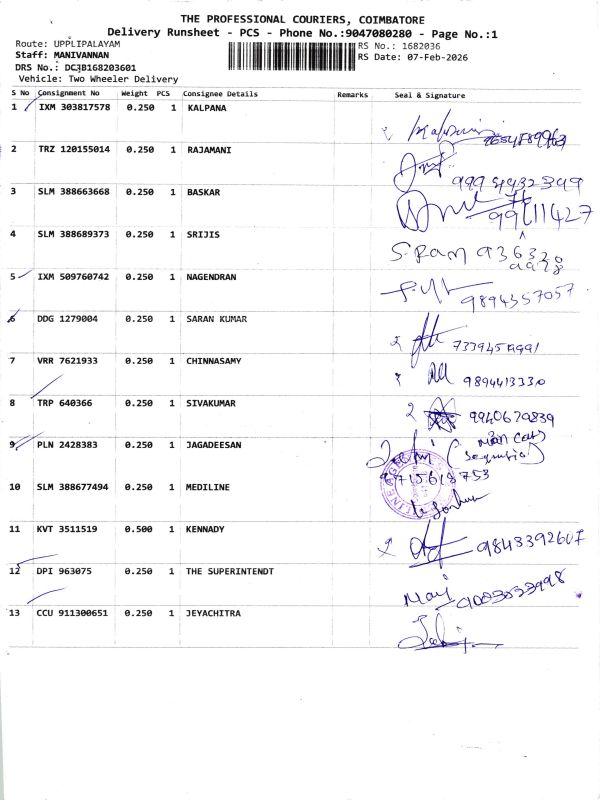 THE PROFESSIONAL COURIERS, COIMBATORE
Delivery Runsheet - PCS - Phone No.:9047080280 - Page No.:1
Route: UPPLIPALAYAM
RS No.: 1682036
Staff: MANIVANNAN
RS Date: 07-Feb-2026
DRS No.: DCJB168203601
Vehicle: Two Wheeler Delivery
S No Consignment No Weight PCS Consignee Details Remarks Seal & Signature
1 IXM 303817578 0.250 1 KALPANA
2 TRZ 120155014 0.250 1 RAJAMANI
9994932349
3 SLM 388663668 0.250 1 BASKAR
4 SLM 388689373 0.250 1 SRIJIS
S. RAM
5 IXM 509760742 0.250 1 NAGENDRAN
9894357057
6 DDG 1279004 0.250 1 SARAN KUMAR
7 VRR 7621933 0.250 1 CHINNASAMY
9894413330
8 TRP 640366 0.250 1 SIVAKUMAR
9940670839
9 PLN 2428383 0.250 1 JAGADEESAN
9715618753
10 SLM 388677494 0.250 1 MEDILINE
11 KVT 3511519 0.500 1 KENNADY
9843392607
12 DPI 963075 0.250 1 THE SUPERINTENDT
13 CCU 911300651 0.250 1 JEYACHITRA